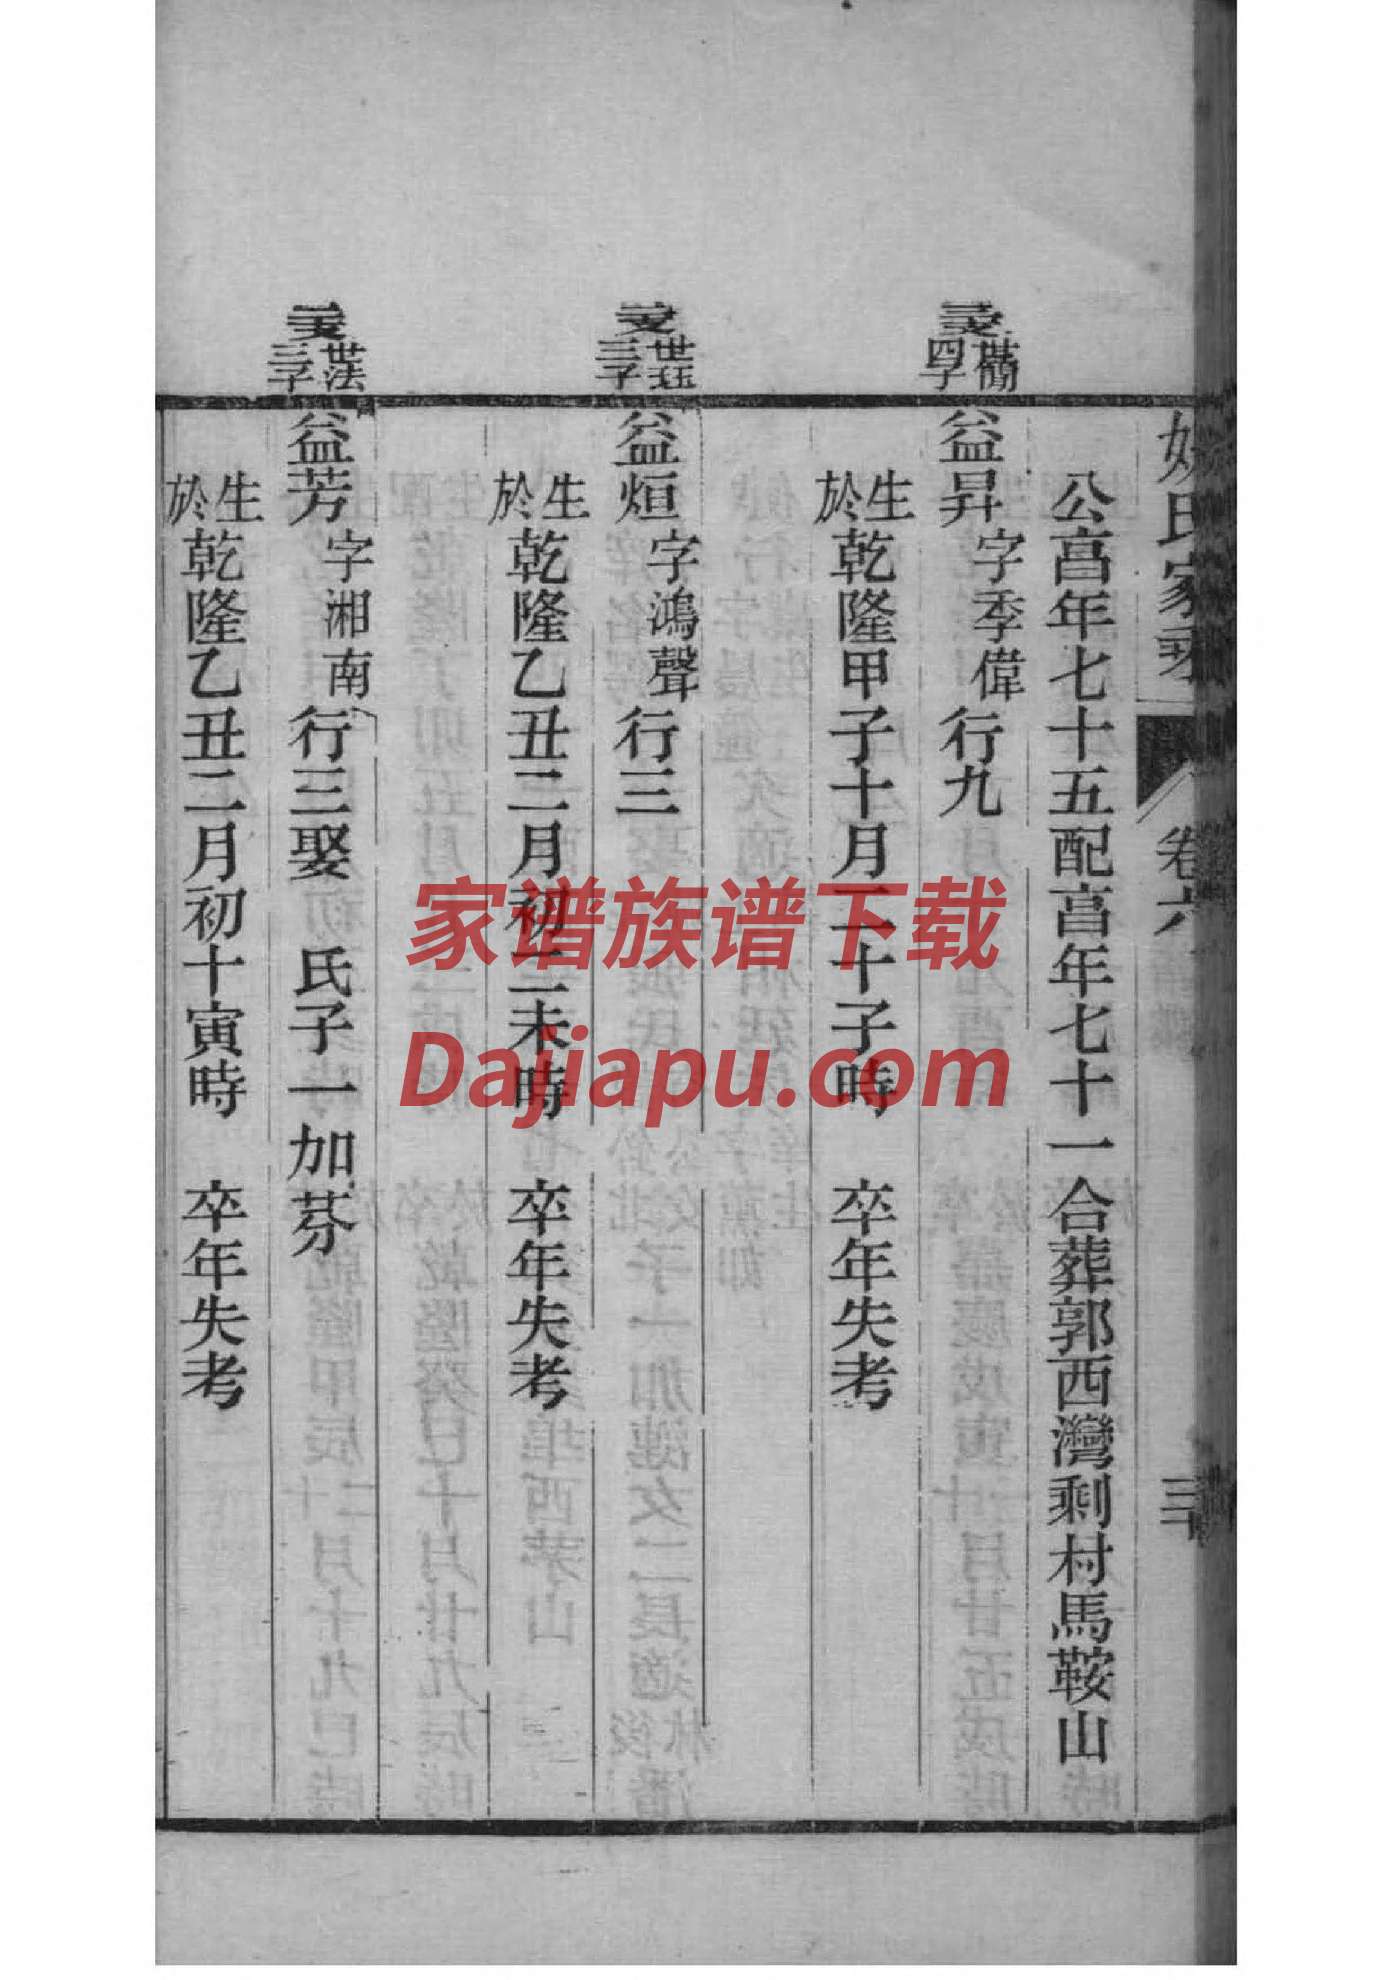 公亯年七十五配亯年七十一合葬郭西灣剩村馬鞍山
世簡四子
益昇字季偉行九
生於乾隆甲子十月二十子時 卒年失考
世珏三子
益烜字鴻聲行三
生於乾隆乙丑二月初二未時 卒年失考
世法三子
益芳字湘南行三娶 氏子一加芬
生於乾隆乙丑二月初十寅時 卒年失考
氏家乘 卷六
家谱族谱下载
Dajiapu.com